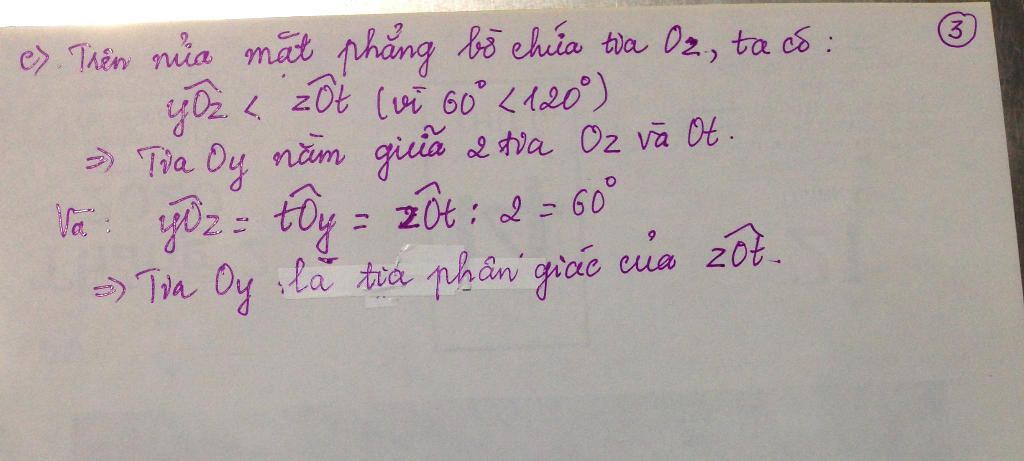 c). Trên nửa mặt phẳng bờ chứa tia Oz, ta có: ③
yÔz < zÔt (vì 60° < 120°)
=> Tia Oy nằm giữa 2 tia Oz và Ot.
Và: yÔz = tÔy = zÔt : 2 = 60°
=> Tia Oy là tia phân giác của zÔt.